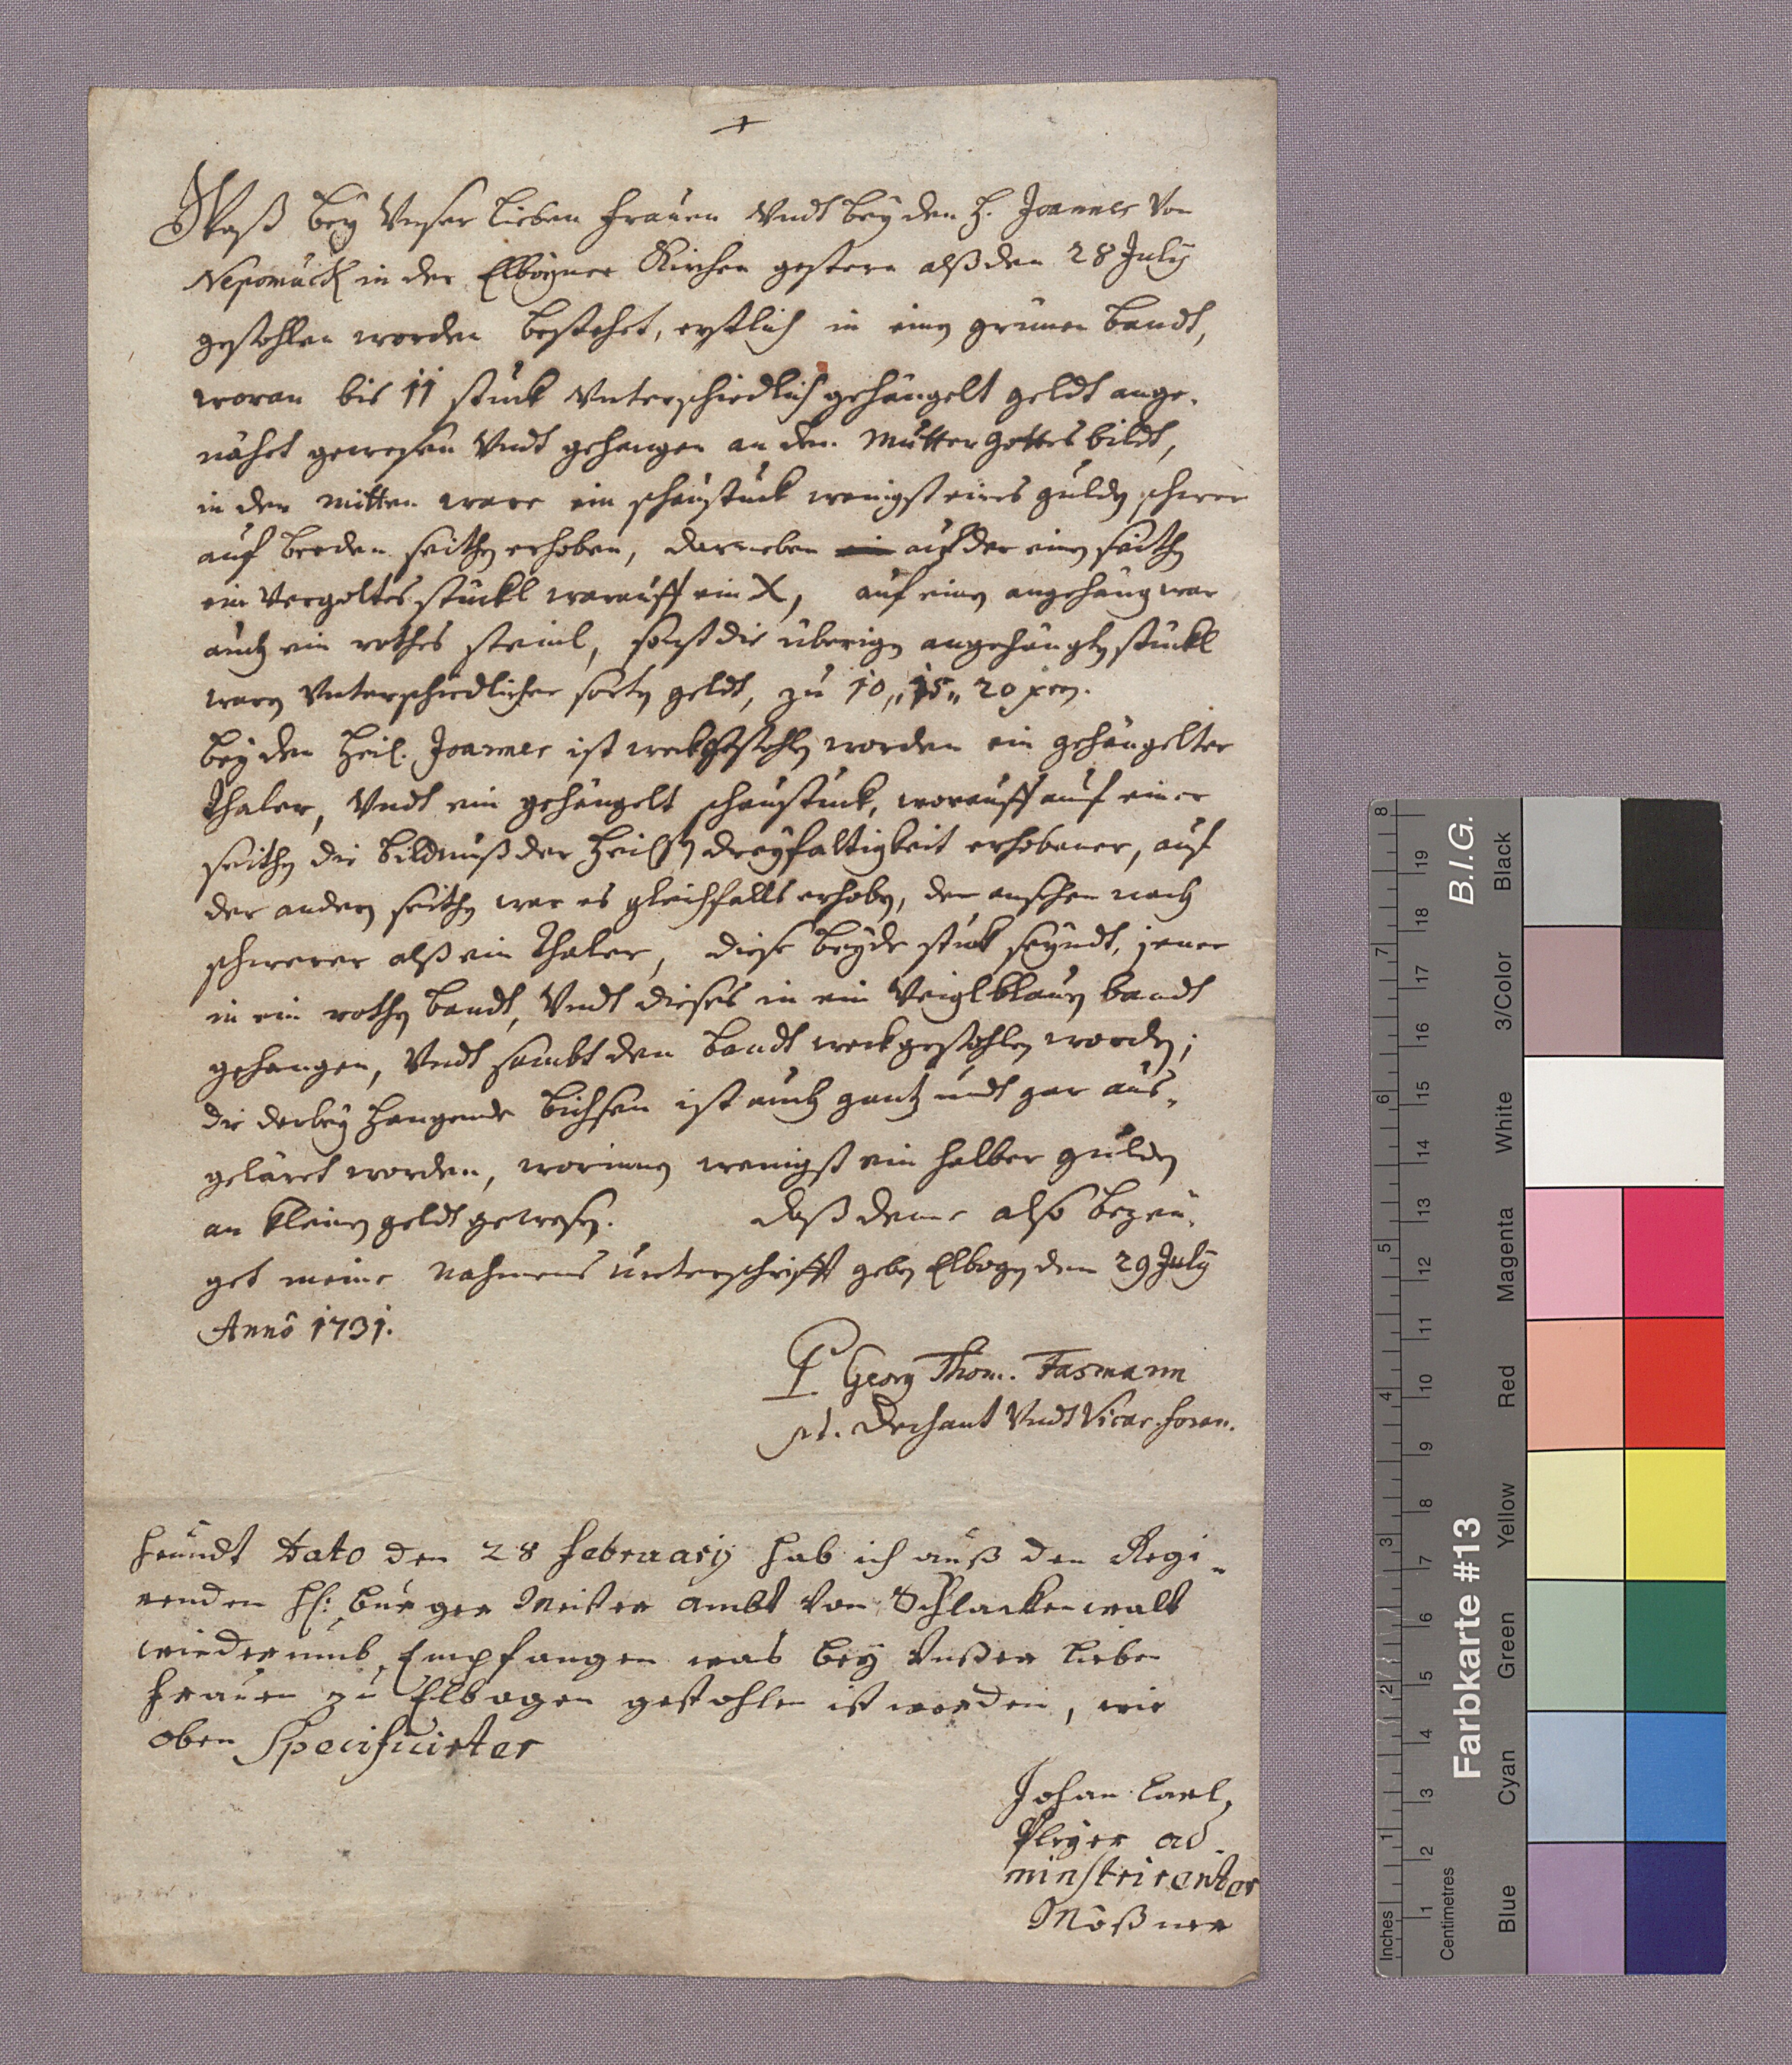 +
Waß bey Vnser lieben frauen Vndt bey den H. Joannes Von
Nepomuck in der Elbogner Kirchen gestern alß den 28 July
gestohlen worden bestehet, erstlich in einen grünen bandt,
woran bis 11 stuck Vnterschiedlich gehängelt geldt ange-
nähet gewesen Vndt gehangen an den Mutter Gottes bildt,
in der mitten ware ein schaustuck wenigst eines guldn schwer
auf beeden seithen erhoben, darneben auf der einen seithn
ein Vergoltes stuckl worauff ein X, auf einen angehäng war
auch ein rothes steinl, sonst die überign angehängtn stuckl
warn Vnterschiedlicher sortn geldt, zu 10,, 15,, 20 xrn.
bey den Heil. Joannes ist weckgestohln worden ein gehängelter
Thaler, Vndt ein gehängelt schaustuck, worauff auf einer
seithn die bildnuß der Heilgn dreyfaltigkeit erhobener, auf
der andern seithn war es gleichfalls erhobn, den ansehen nach
schwerer alß ein Thaler, diese beyde stuck seyndt, jener
in ein rothn bandt, Vndt dieses in ein Veiglblaun bandt
gehangen, Vndt sambt den bandt weckgestohln wordn;
die darbey hangende bichsen ist auch gantz undt gar aus-
geläret worden, worinnen wenigst ein halber guldn
an kleinen geldt gewesn. daß deme also bezeu-
get meine Nahmens unterschrifft gebn Elbogn den 29 July
Annô 1731.
P Georg Thom. Fasmann
p.t. Dechant Vndt Vicar. foran.
heundt Dato den 28 february hab ich auß den Regi-
renden H: burger Meister ambt von Schlackenwalt
wiederumb Empfangen was bey Vnßer lieben
frauen zu Elbogen gestohlen ist worden, wie
oben Specificirter
Johan Carl,
Pleyer ad-
minstrirenter
Mößner